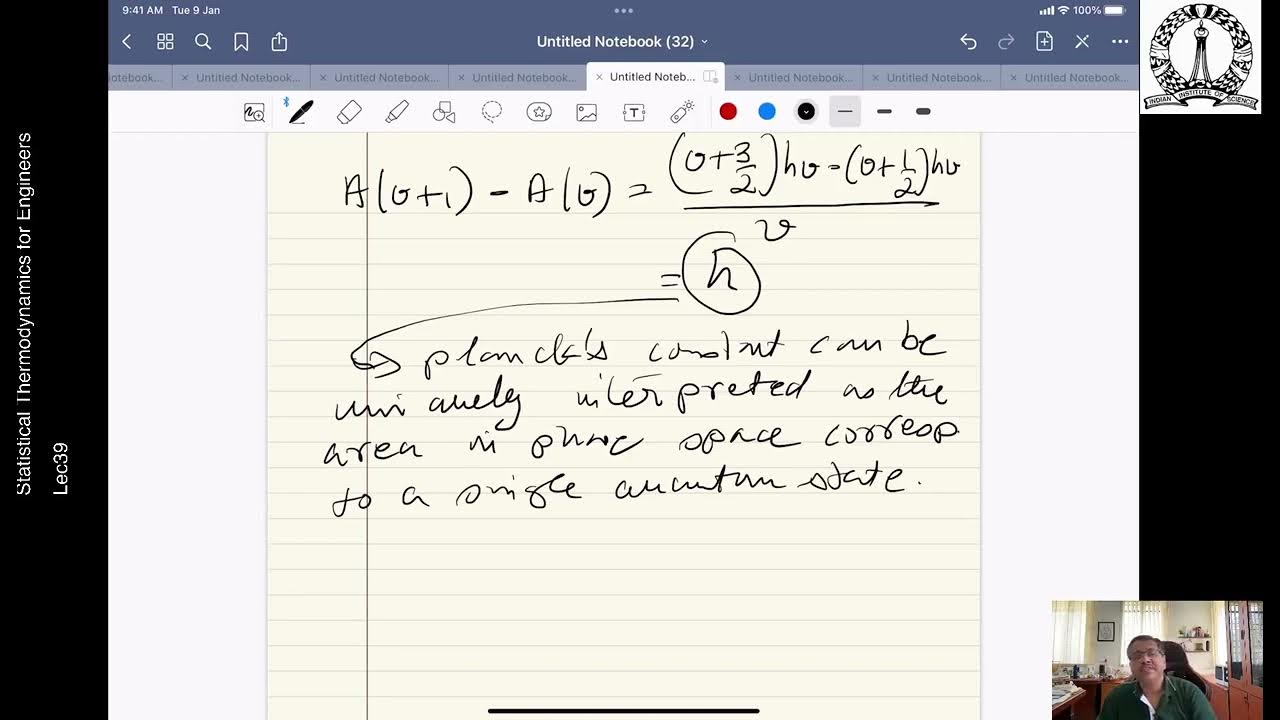 9:41 AM Tue 9 Jan
100%
Untitled Notebook (32)
otebook...
× Untitled Notebook...
× Untitled Notebook...
× Untitled Notebook...
× Untitled Noteb...
× Untitled Notebook...
× Untitled Notebook...
× Untitled Notebook...
A(υ+1) - A(υ) = ((υ+3/2)hυ - (υ+1/2)hυ)/ν
= h
↪ planck's constant can be
uniquely interpreted as the
area in phase space corresp
to a single quantum state.
Statistical Thermodynamics for Engineers
Lec39
INDIAN INSTITUTE OF SCIENCE